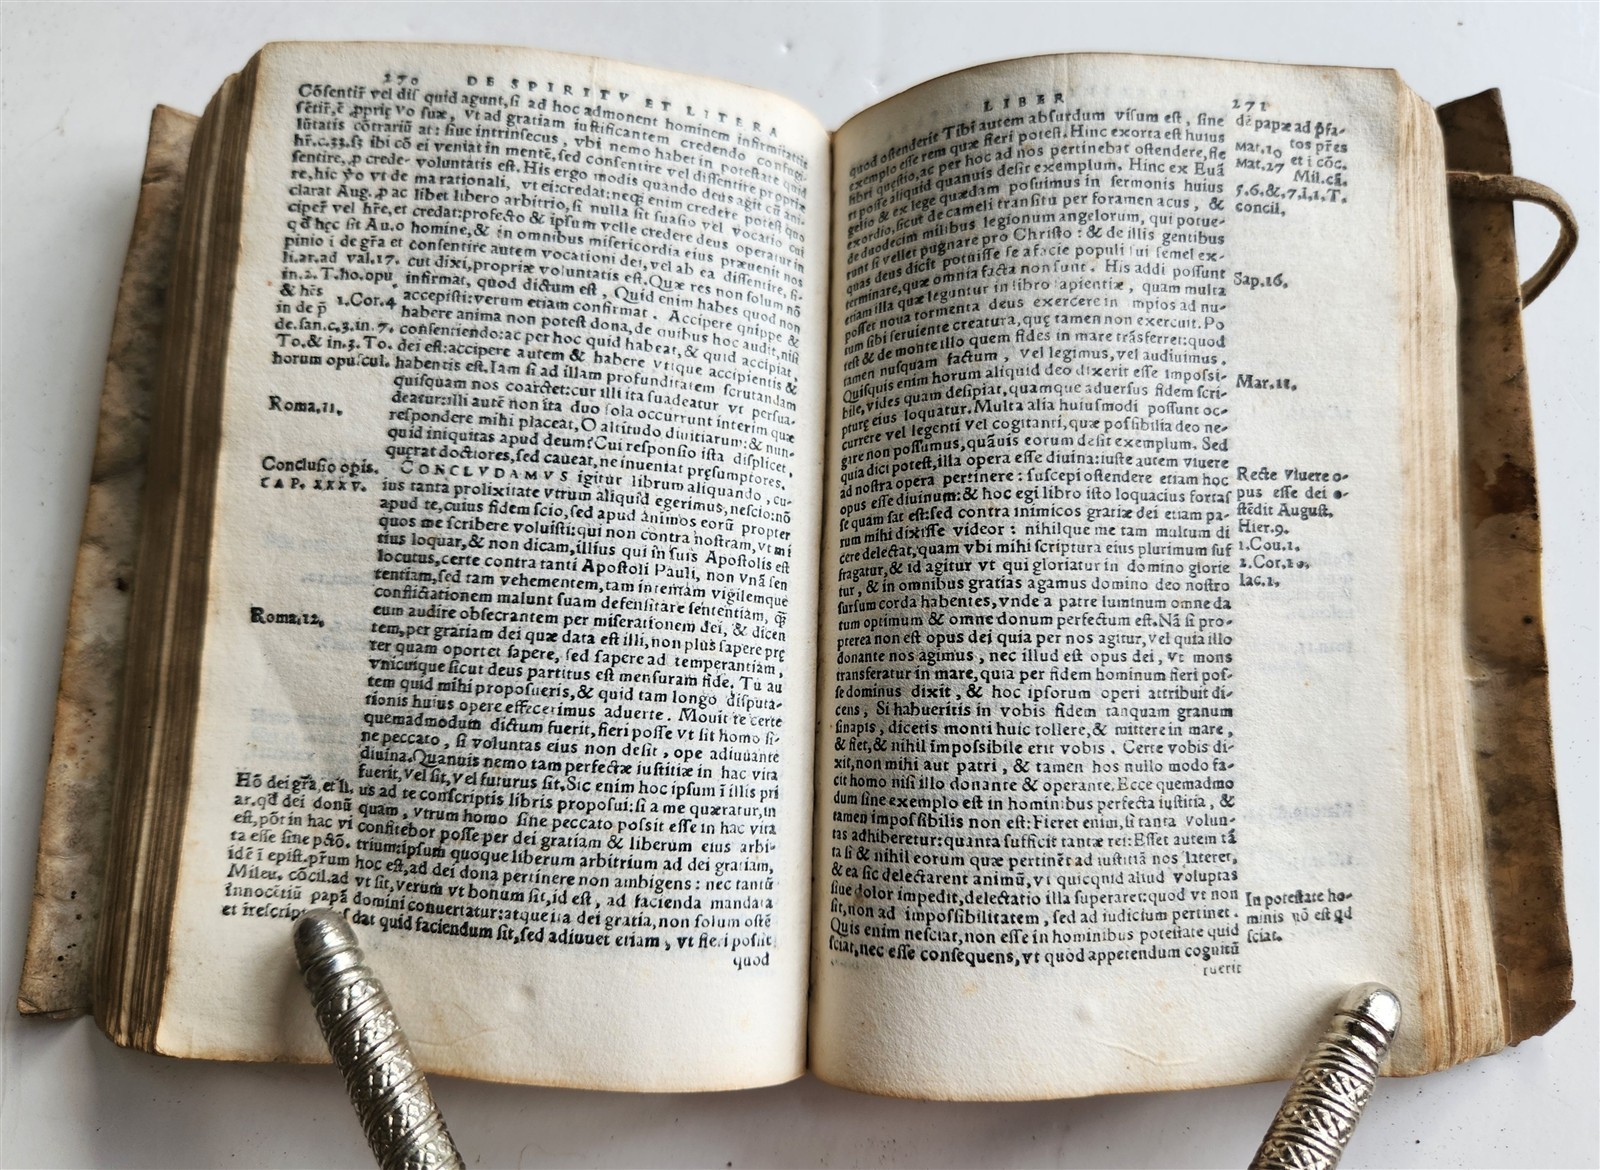 270 DE SPIRITV ET LITERA
Cōsentir vel dis quid agunt, si ad hoc admonent hominem infirmitatis
suæ, vt ad gratiam iustificantem credendo confugi-
at: siue intrinsecus, vbi nemo habet in potestate quid
ei veniat in mentē, sed consentire vel dissentire propriæ
voluntatis est. His ergo modis quando deus agit cū ani-
ma rationali, vt ei credat: neq; enim credere potest quo
libet libero arbitrio, si nulla sit suasio vel vocatio cui
credat: profecto & ipsum velle credere deus operatur in
homine, & in omnibus misericordia eius præuenit nos
consentire autem vocationi dei, vel ab ea dissentire, si-
cut dixi, propriæ voluntatis est. Quæ res non solum nō
infirmat, quod dictum est, Quid enim habes quod non
1.Cor.4 accepisti: verum etiam confirmat. Accipere quippe &
habere anima non potest dona, de quibus hoc audit, nisi
consentiendo: ac per hoc quid habeat, & quid accipiat,
dei est: accipere autem & habere vtique accipientis &
habentis est. Iam si ad illam profunditatem scrutandam
quisquam nos coarctet: cur illi ita suadeatur vt persua-
deatur: illi autē non ita duo sola occurrunt interim quæ
Roma.11. respondere mihi placeat, O altitudo diuitiarum: & nun-
quid iniquitas apud deum? Cui responsio ista displicet,
quærat doctiores, sed caueat, ne inueniat pręsumptores.
Conclusio opis. CONCLVDAMVS igitur librum aliquando, cu-
CAP. XXXV. ius tanta prolixitate vtrum aliquid egerimus, nescio: nō
apud te, cuius fidem scio, sed apud animos eorū propter
quos me scribere voluisti: qui non contra nostram, vt mi
tius loquar, & non dicam, illius qui in suis Apostolis est
locutus, certe contra tanti Apostoli Pauli, non vnā sen
tentiam, sed tam vehementem, tam intentam vigilemque
conflictationem malunt suam defensitare sententiam, q̄
Roma.12. eum audire obsecrantem per miserationem dei, & dicen
tem, per gratiam dei quæ data est illi, non plus sapere prę
ter quam oportet sapere, sed sapere ad temperantiam,
vnicuique sicut deus partitus est mensuram fidei. Tu au
tem quid mihi proposueris, & quid tam longo disputa-
tionis huius opere effecerimus aduerte. Mouit te certe
quemadmodum dictum fuerit, fieri posse vt sit homo si-
ne peccato, si voluntas eius non desit, ope adiuuante
diuina. Quanuis nemo tam perfectæ iustitiæ in hac vita
fuerit, vel sit, vel futurus sit. Sic enim hoc ipsum ī illis pri
Hō dei grā, et li. us ad te conscriptis libris proposui: si a me quæratur, in
ar. qd dei donū quam, vtrum homo sine peccato possit esse in hac vita
est, pōt in hac vi confitebor posse per dei gratiam & liberum eius arbi-
ta esse sine pctō. trium: ipsum quoque liberum arbitrium ad dei gratiam,
idē ī epist. prīm hoc est, ad dei dona pertinere non ambigens: nec tantū
Mileu. cōcil. ad vt sit, verum vt bonum sit, id est, ad facienda mandata
innocētiū papā domini conuertatur: atque ita dei gratia, non solum ostē
dat quid faciendum sit, sed adiuuet etiam, vt fieri possit
quod
LIBER 271
quod ostenderit Tibi autem absurdum visum est, sine
exemplo esse rem quæ fieri potest. Hinc exorta est huius
libri quęstio, ac per hoc ad nos pertinebat ostendere, fie
et posse aliquid quanuis desit exemplum. Hinc ex Euā
gelio & ex lege quædam posuimus in sermonis huius
exordio, sicut de cameli transitu per foramen acus, &
de duodecim milibus legionum angelorum, qui potue-
runt si vellet pugnare pro Christo: & de illis gentibus
quas deus dicit potuisse se a facie populi sui semel ex-
terminare, quæ omnia facta non sunt. His addi possunt
etiam illa quæ leguntur in libro sapientiæ, quam multa
posset noua tormenta deus exercere in impios ad nu-
tum sibi seruiente creatura, quę tamen non exercuit. Po
test & de monte illo quem fides in mare trāsferret: quod
tamen nusquam factum, vel legimus, vel audiuimus.
Quisquis enim horum aliquid deo dixerit esse impossi-
bile, vides quam desipiat, quamque aduersus fidem scri-
pturę eius loquatur. Multa alia huiusmodi possunt oc-
currere vel legenti vel cogitanti, quæ possibilia deo ne-
gare non possumus, quāuis eorum desit exemplum. Sed
quia dici potest, illa opera esse diuina: iuste autem viuere
ad nostra opera pertinere: suscepi ostendere etiam hoc
opus esse diuinum: & hoc egi libro isto loquacius fortas
se quam sat est: sed contra inimicos gratiæ dei etiam pa-
rum mihi dixisse videor: nihilque me tam multum di
cere delectat, quam vbi mihi scriptura eius plurimum suf
fragatur, & id agitur vt qui gloriatur in domino glorie
tur, & in omnibus gratias agamus domino deo nostro
sursum corda habentes, vnde a patre luminum omne da
tum optimum & omne donum perfectum est. Nā si pro-
pterea non est opus dei quia per nos agitur, vel quia illo
donante nos agimus, nec illud est opus dei, vt mons
transferatur in mare, quia per fidem hominum fieri pos-
se dominus dixit, & hoc ipsorum operi attribuit di-
cens, Si habueritis in vobis fidem tanquam granum
sinapis, dicetis monti huic tollere, & mittere in mare,
& fiet, & nihil impossibile erit vobis. Certe vobis di-
xit, non mihi aut patri, & tamen hos nullo modo fa-
cit homo nisi illo donante & operante. Ecce quemadmo
dum sine exemplo est in hominibus perfecta iustitia, &
tamen impossibilis non est: Fieret enim, si tanta volun-
tas adhiberetur: quanta sufficit tantæ rei: Esset autem tā
ta si & nihil eorum quæ pertinēt ad iustitiā nos lateret,
& ea sic delectarent animū, vt quicquid aliud voluptas
siue dolor impedit, delectatio illa superaret: quod vt non
sit, non ad impossibilitatem, sed ad iudicium pertinet.
Quis enim nesciat, non esse in hominibus potestate quid
sciat, nec esse consequens, vt quod appetendum cognitū
fuerit
Mat.19
Mat.27 et i cōc.
Mil. cā.
5.6.&.7,i,1.T.
concil.
Sap.16.
Mar.11.
Recte viuere o-
pus esse dei o-
stēdit August.
Hier.9.
1.Cou.1.
1.Cor.10.
Iac.1.
In potestate ho-
minis nō est qd
sciat.